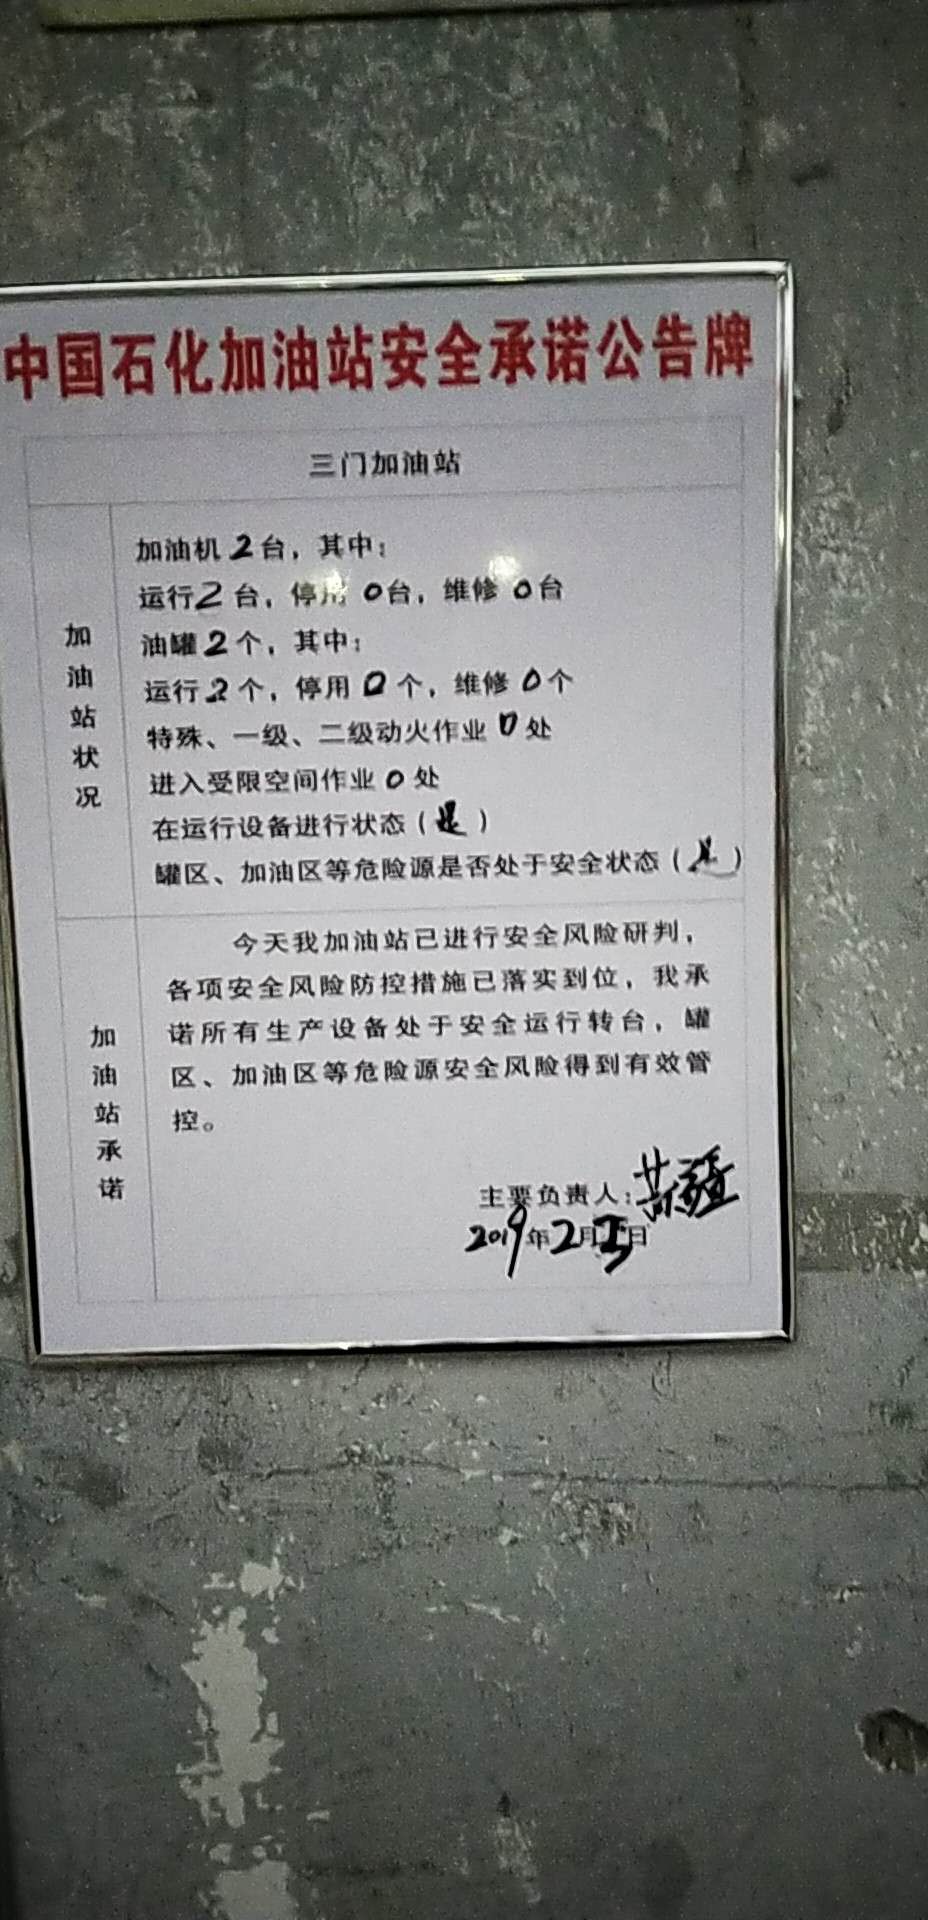 中国石化加油站安全承诺公告牌
三门加油站
加油站状况
加油机2台，其中：
运行2台，停用0台，维修0台
油罐2个，其中：
运行2个，停用0个，维修0个
特殊、一级、二级动火作业0处
进入受限空间作业0处
在运行设备进行状态（是）
罐区、加油区等危险源是否处于安全状态（是）
加油站承诺
今天我加油站已进行安全风险研判，
各项安全风险防控措施已落实到位，我承
诺所有生产设备处于安全运行转台，罐
区、加油区等危险源安全风险得到有效管
控。
主要负责人：
2019年2月 日